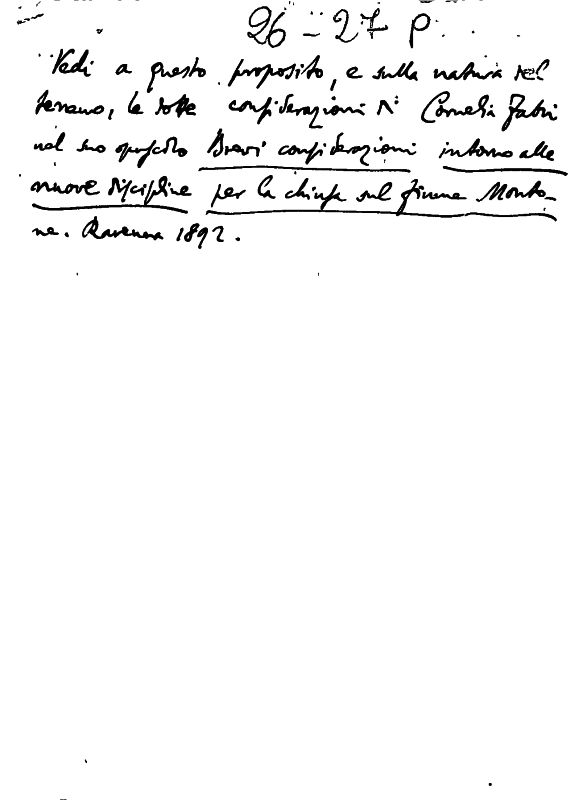 26-27 P.
Vedi a questo proposito, e sulla natura del
terreno, le dotte considerazioni di Cornelia Fabri
nel suo opuscolo Brevi considerazioni intorno alle
nuove discipline per la chiusa sul fiume Monto-
ne. Ravenna 1892.